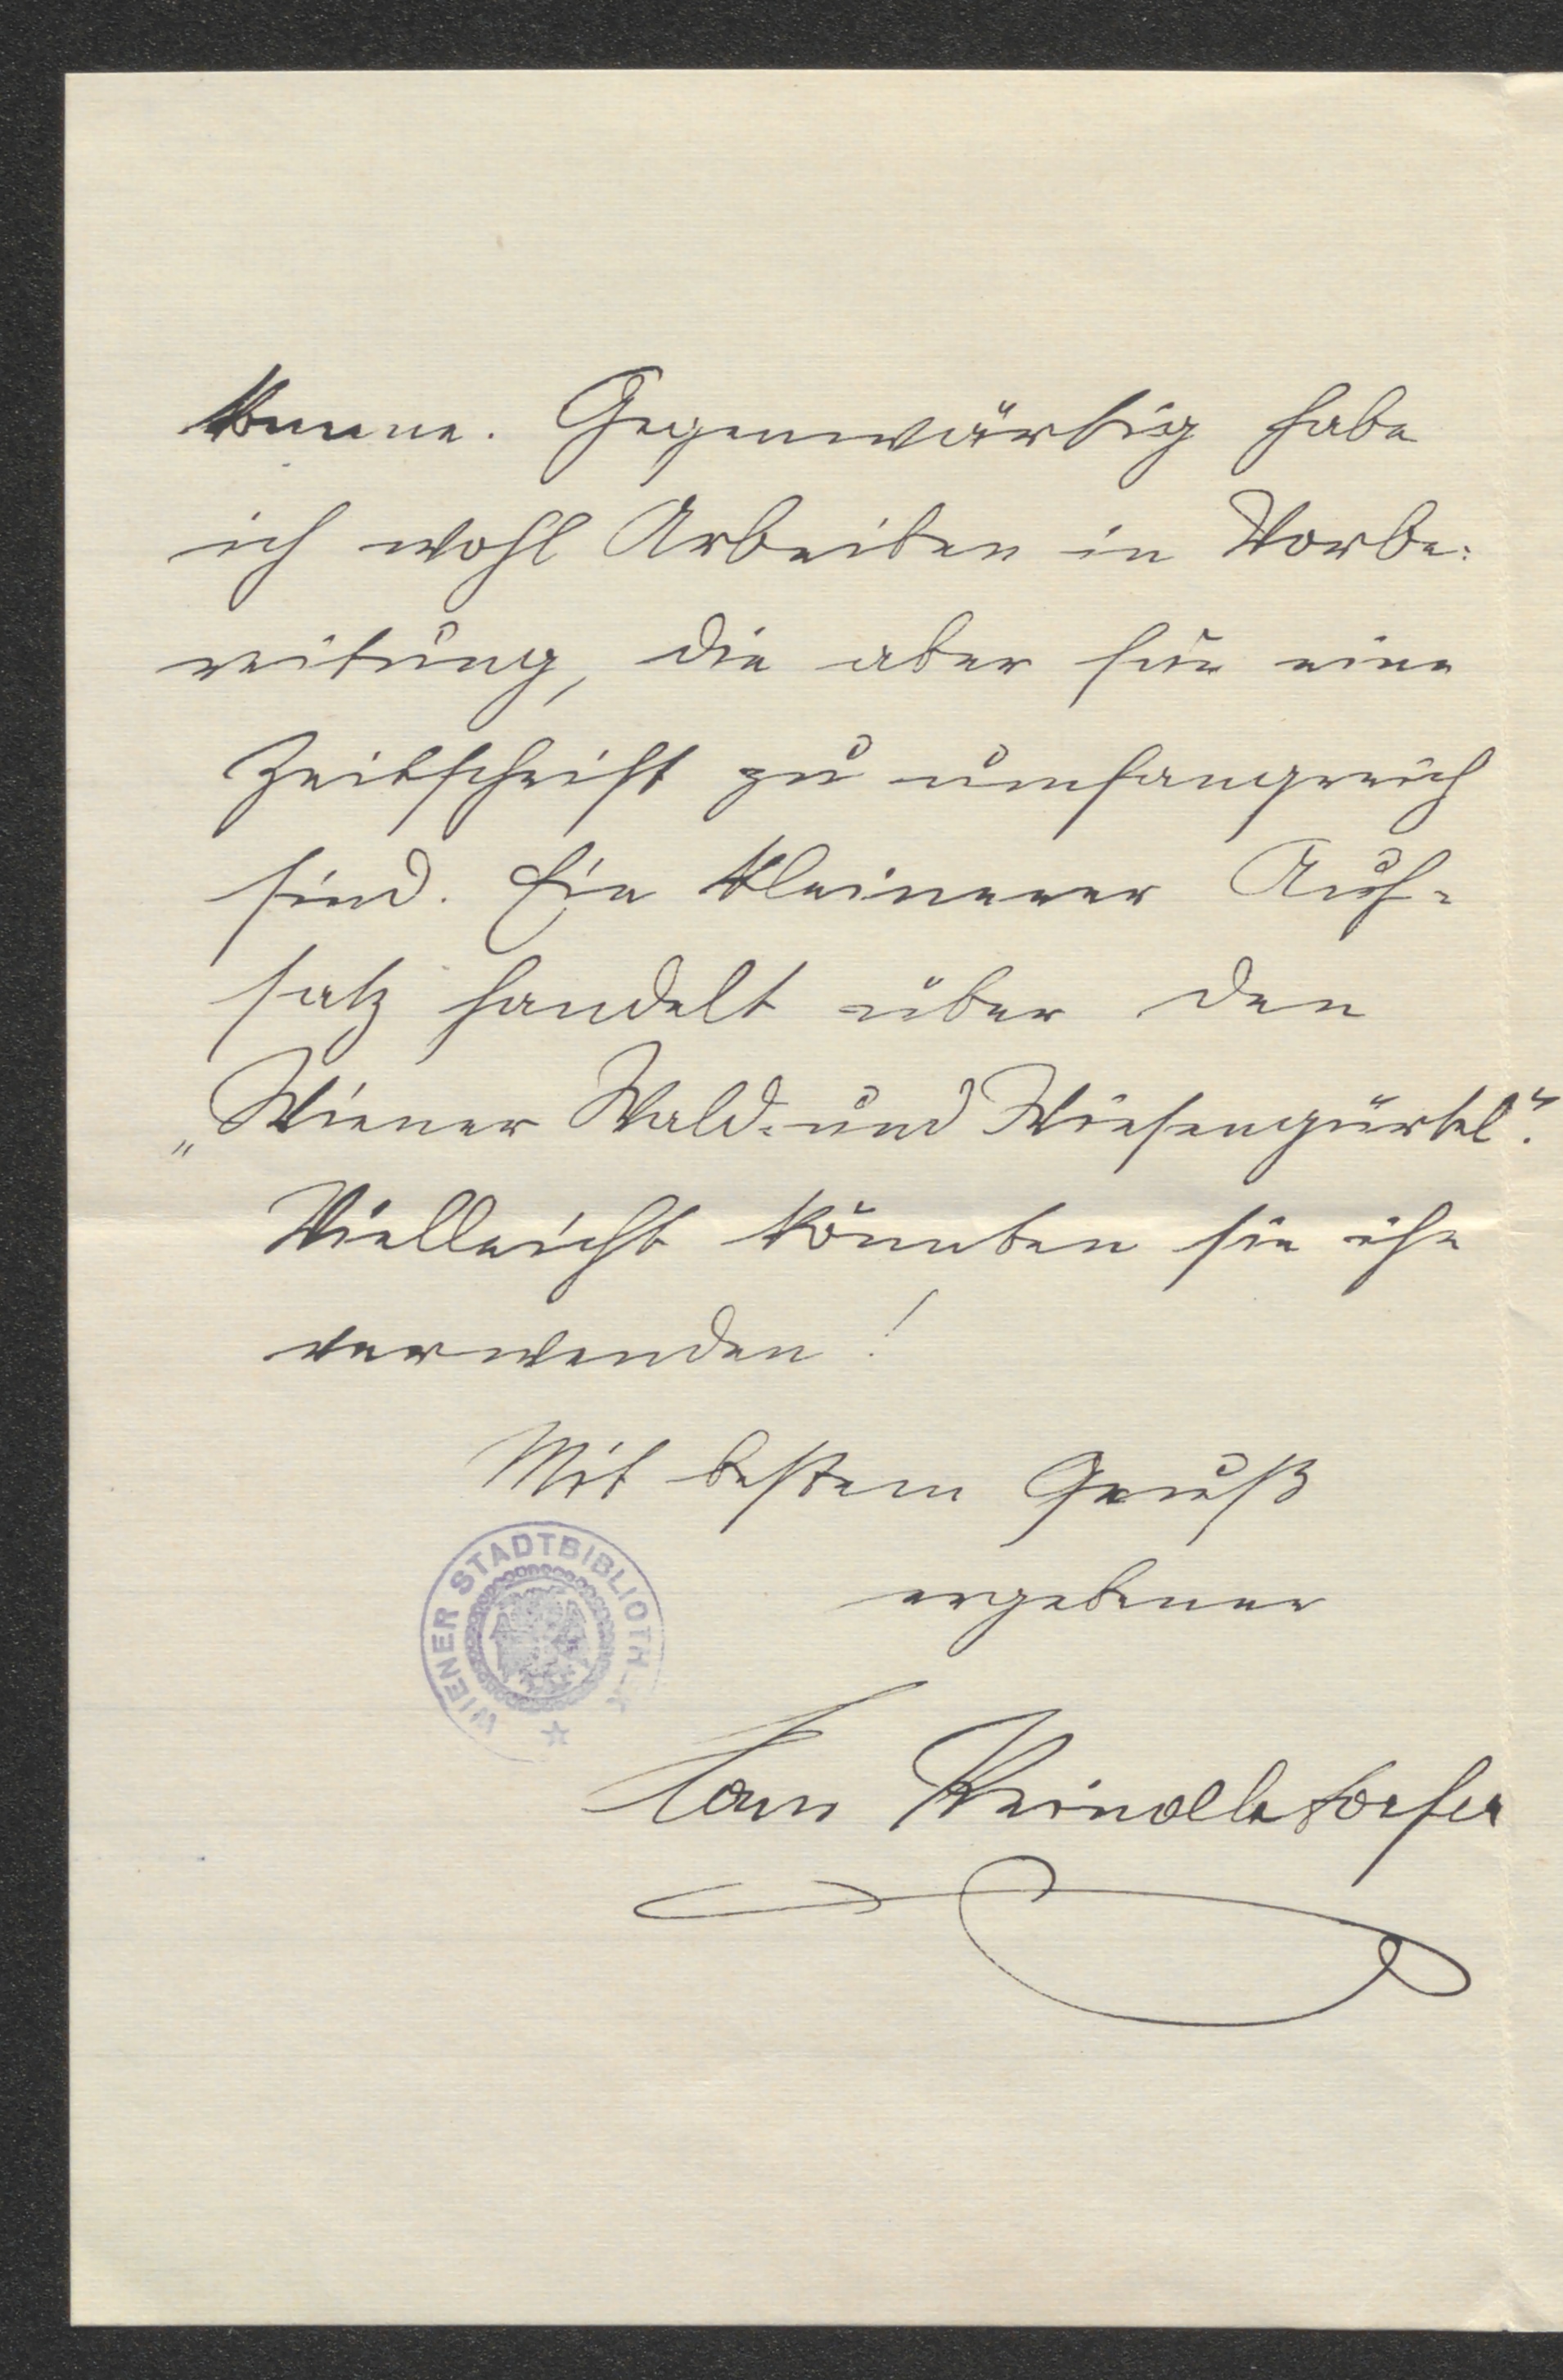 kenne. Gegenwärtig habe
ich wohl Arbeiten in Vorbe:
reitung, die aber für eine
Zeitschrift zu umfangreich
sind. Ein kleinerer Auf-
satz handelt über den
„Wiener Wald- und Wiesengürtel“.
Vielleicht könnten sie ihn
verwenden!
Mit bestem Gruß
ergebener
WIENER STADTBIBLIOTHEK